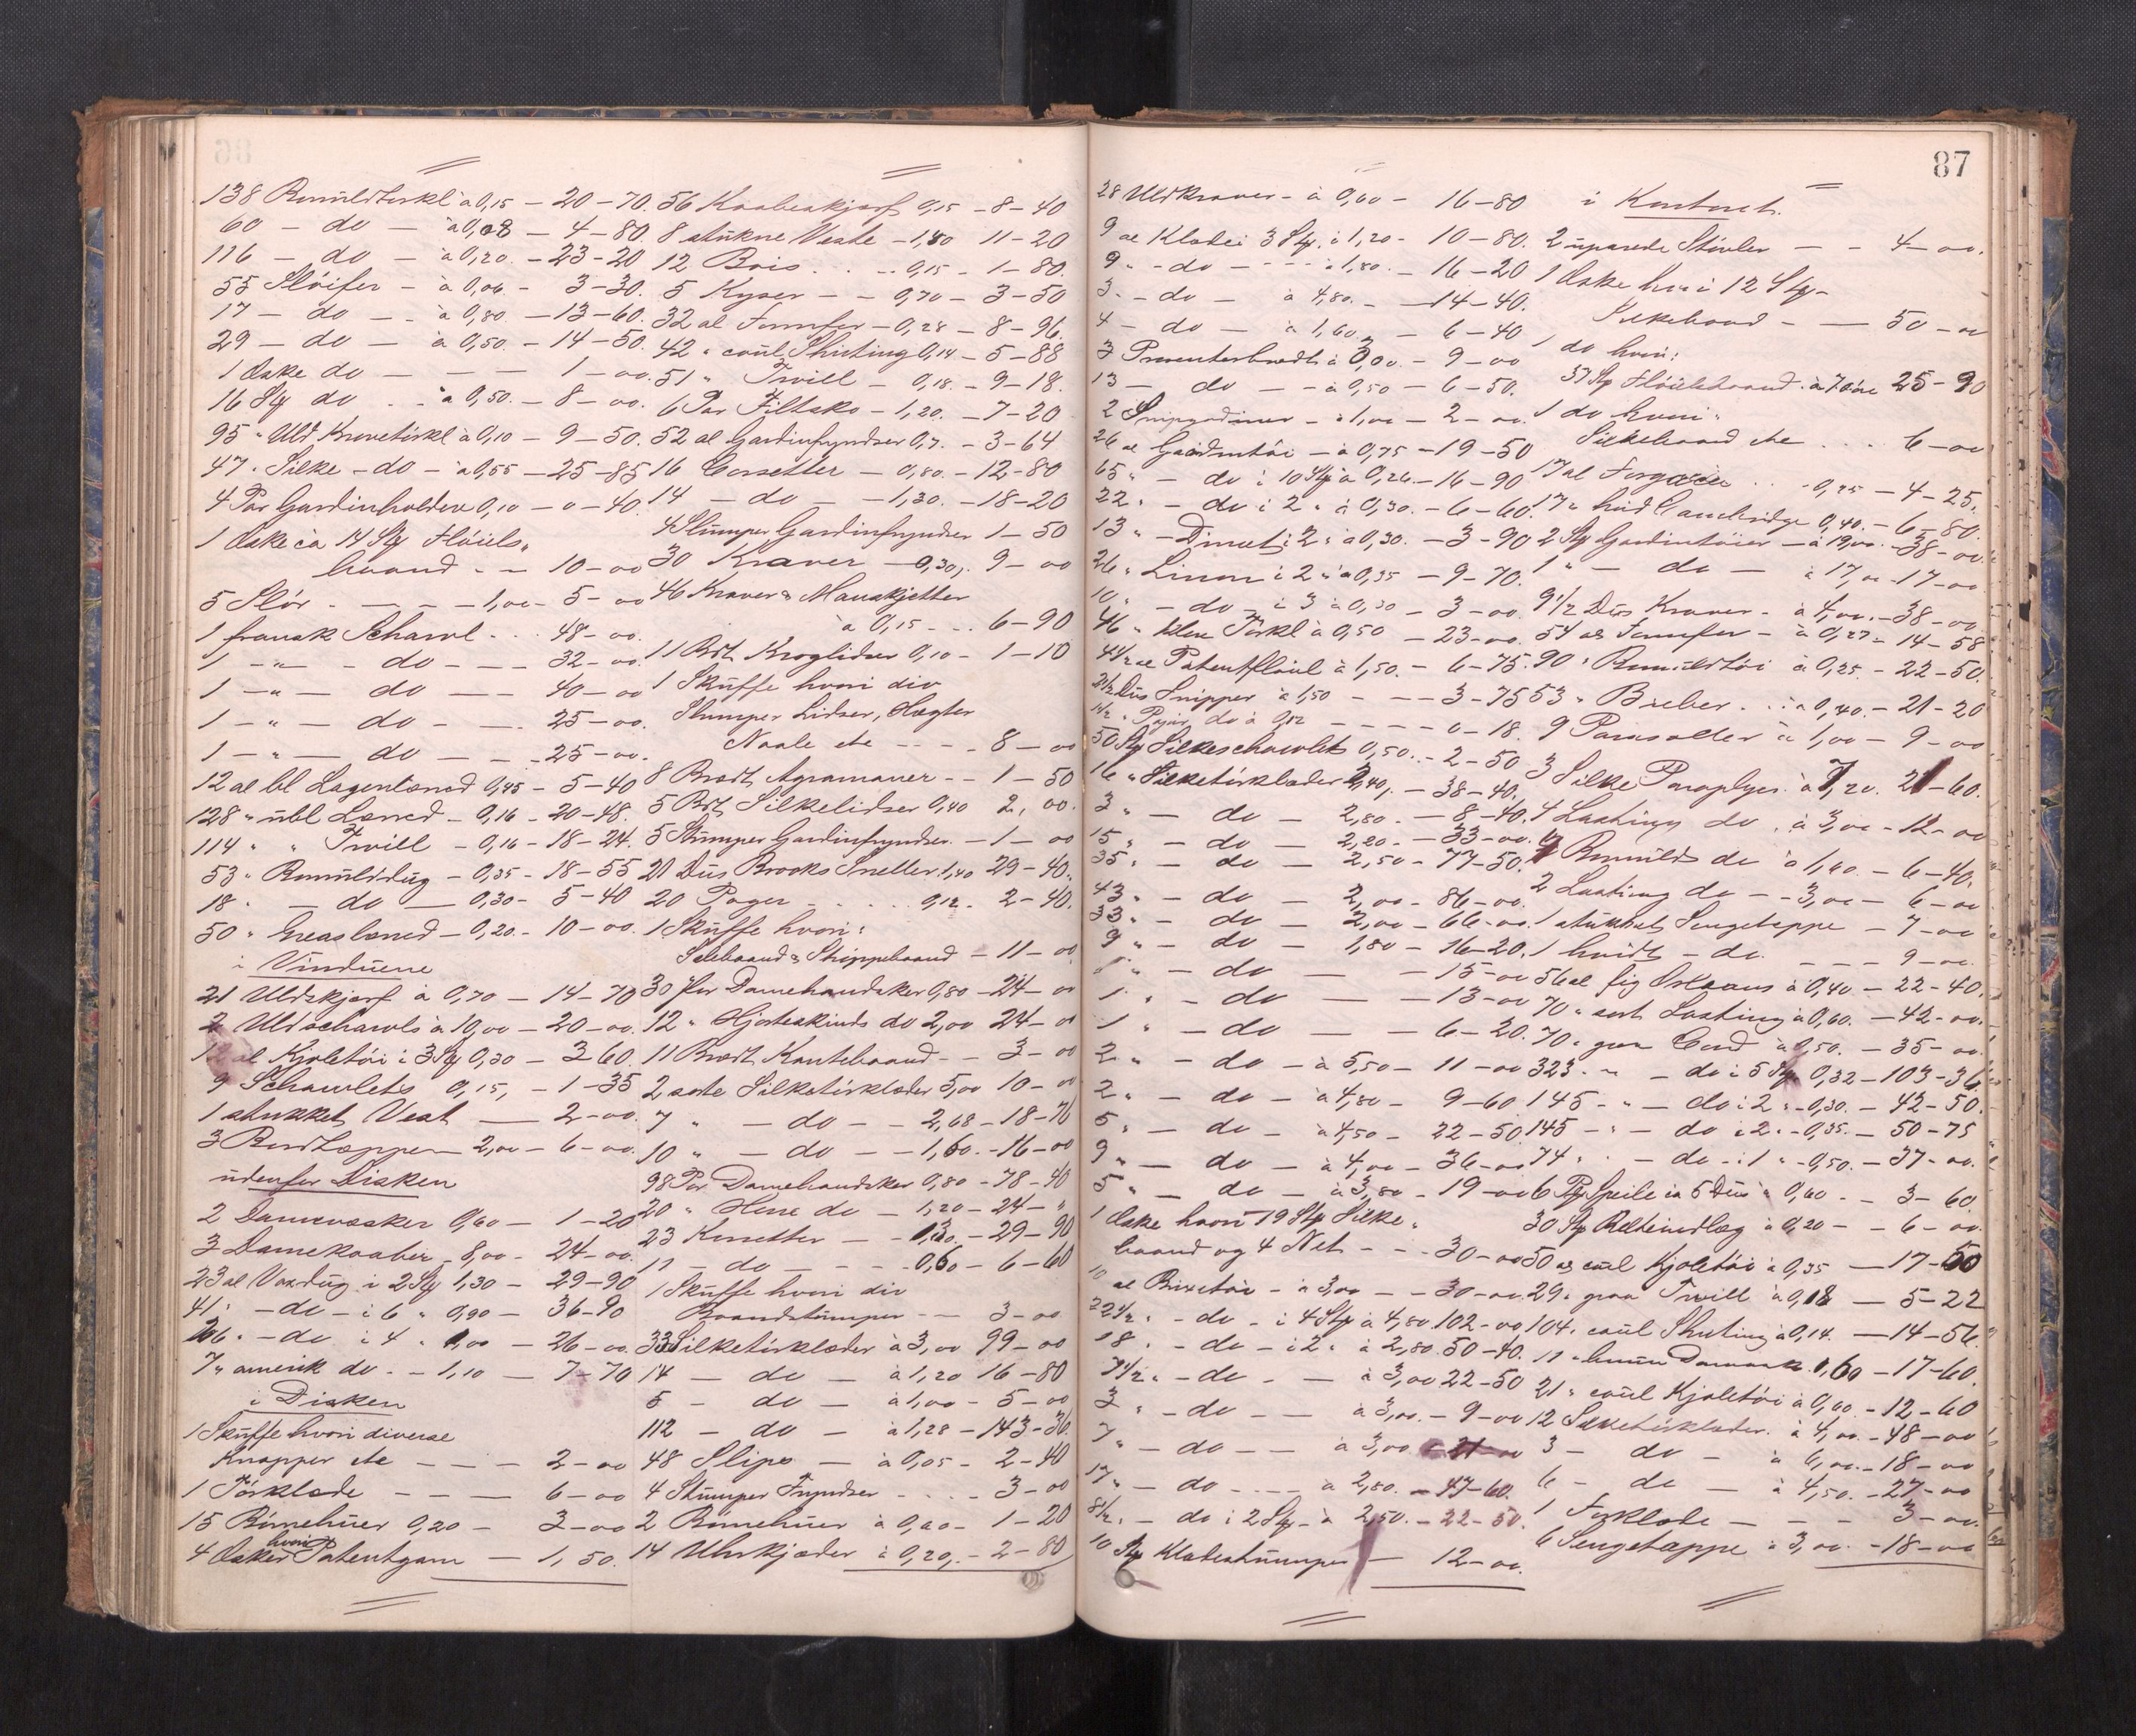 138 Bomuldtørkl à 0,15 – 20–70.
60 – do – à 0,08 – 4–80.
116 – do – à 0,20 – 23–20
55 Sløifer – à 0,06 – 3–30.
17 – do – à 0,80 – 13–60.
29 – do – à 0,50 – 14–50.
1 Æske do – – – 1–00.
16 Stk do – à 0,50 – 8–00.
95 " Uld Kravetørkl à 0,10 – 9–50.
47 " Silke – do – à 0,55 – 25–85
4 Par Gardinholdere 0,10 – 0–40.
1 Æske ca 14 Stk Fløiels
baand – – 10–00
5 Slør – – – 1,00 – 5–00
1 fransk Schawl – – 48–00.
1 – " – do – – 32–00.
1 – " – do – – 40–00
1 – " – do – – 25–00.
1 – " – do – – 25–00.
12 al bl Lagenlærred 0,45 – 5–40
128 " ubl Lærred – 0,16 – 20–48.
114 " " Twill – 0,16 – 18–24.
53 " Bomuldsdug – 0,35 – 18–55
18 " – do – 0,30 – 5–40
50 " Greaslærred – 0,20 – 10–00.
i Vinduerne
21 Uldskjærf à 0,70 – 14–70
2 Uldschawls à 10,00 – 20–00.
12 al Kjoletøi i 3 Stk 0,30 – 3–60.
9 Schawlets 0,15, – 1–35
1 strikket Vest – 2–00.
3 Bordtæpper – 2,00 – 6–00.
udenfor Disken
2 Damevæsker 0,60 – 1–20
3 Damekaaber – 8,00 – 24–00.
23 al Voxdug i 2 Stk 1,30 – 29–90
41 " – do – i 6 " 0,90 – 36–90
26 " – do i 4 " 1,00 – 26–00.
7 " amerik do – – 1,10 – 7–70
i Disken
1 Skuffe hvori diverse
Knapper etc – – – 2–00
1 Tørklæde – – – 6–00
15 Børnehuer 0,20 – 3–00
4 Æsker hvori Patentgarn – 1,50.
56 Kaabeskjærf 0,15 – 8–40
8 strikne Veste – 1,40 11–20
12 Bois – – – 0,15 – 1–80.
5 Kyser – – 0,70 – 3–50
32 al Fornfor – 0,28 – 8–96.
42 " coul Shirting 0,14 – 5–88
51 " Twill – 0,18 – 9–18.
6 Par Filtsko – 1,20 – 7–20
52 al Gardinfryndser 0,7 – 3–64
16 Corsetter – 0,80 – 12–80
14 – do – – 1,30 – 18–20
4 Stumper Gardinfryndser 1–50
30 Kraver – 0,30, 9–00
46 Kraver & Manskjetter
à 0,15 – – 6–90
11 Brt Kroglidser 0,10 – 1–10
1 Skuffe hvori div
Stumper Lidser, Hægter
Naale etc – – – 8–00
8 Brædt Agramaner – – 1–50
5 Brt Silkelidser 0,40 2,00.
5 Stumper Gardinfryndser – 1–00
21 Dus Brooks Sneller 1,40 29–40.
20 Poger – – – 0,12 – 2–40.
1 Skuffe hvori:
Selebaand & Strippebaand – 11–00
30 Par Damehandsker 0,80 – 24–00
12 " Hjorteskinds do 2,00 24–00
11 Brædt Kantebaand – – 3–00
2 sorte Silketørklæder 5,00 10–00
7 " – do – – 2,68 – 18–76
10 " – do – – 1,60 – 16–00
98 Par Damehandsker 0,80 – 78–40
20 " Herre do – 1,20 – 24–"
23 Korsetter – – 1,30 – 29–90
11 – do – – – 0,60 – 6–60
1 Skuffe hvori div
Baandstumper – – 3–00
33 Silketørklæder à 3,00 99–00
14 – do – à 1,20 16–80
5 – do – à 1,00 – 5–00
112 – do – à 1,28 – 143–36
48 Slips – à 0,05 – 2–40
4 Stumper Fryndser – – – 3–00
2 Børnehuer à 0,60 – 1–20
14 Uhrkjæder à 0,20, – 2–80
87
28 Uldkraver – à 0,60 – 16–80
9 al Klæde i 3 Stk. à 1,20 – 10–80.
9 " – do – – – à 1,80 – 16–20
3 " – do – à 4,80 – 14–40.
4 – do – à 1,60 – 6–40
3 Presenterbrædt à 3,00 – 9–00
13 – do – – à 0,50 – 6–50.
2 Snipgardiner – à 1,00 – 2–00.
26 al Gardintøi – à 0,75 – 19–50
65 " – do i 10 Stk à 0,26 – 16–90
22 " – do i 2 " à 0,30 – 6–60.
13 " – Dimet i 2 " à 0,30 – 3–90
26 " Linon i 2 " à 0,35 – 9–70.
10 " – do – i 3 à 0,30 – 3–00.
46 " klen Tørkl à 0,50 – 23–00.
4 1/2 al Patentfløiel à 1,50 – 6–75.
2 1/2 Dus Snipper à 1,50 – – 3–75
1 1/2 " Papir do à 0,12 – – – 0–18.
50 Stk Silkeschawlets 0,50 – 2–50
16 " Silketørklæder 2,40, – 38–40.
3 " – do – 2,80 – 8–40.
15 " – do – 2,20 – 33–00.
35 " – do – 2,50 – 77–50.
43 " – do – 2,00 – 86–00.
33 " – do – 2,00 – 66–00.
9 " – do – 1,80 – 16–20.
1 " – do – – 15–00
1 " – do – – 13–00
1 " – do – – 6–20.
2 " – do – à 5,50 – 11–00
2 " – do – à 4,80 – 9–60
5 " – do – à 4,50 – 22–50
9 " – do – à 4,00 – 36–00
5 " – do – à 3,80 – 19–00
1 Æske hvori 19 Stk Silke
baand og 4 Net – – – 30–00
10 al Buxetøi – à 3,00 – – 30–00.
22 1/2 " – do – i 4 Stk à 4,80 102–00
18 " – do – i 2 " à 2,80 50–40.
7 1/2 " – do – – à 3,00 22–50
3 " – do – – à 3,00 – 9–00
7 " – do – – à 3,00 – 21–00
17 " – do – – – à 2,80 – 47–60.
8 1/2 " – do i 2 Stk – à 2,50 – 22–50.
10 Stk Klædestumper – 12–00.
i Kontoret.
2 uparede Støvler – – 4–00.
1 Æske hvori 12 Stk
Silkebaand – – 50–00
1 do hvori:
37 Stk Fløielsbaand à 70 øre 25–90
1 do hvori
Silkebaand etc – – – 6–00
17 al – – – 0,25 – 4–25.
17 " hvid Cambridge 0,40 – 6–80.
2 Stk Gardintøier – à 19,00 – 38–00
1 " – do – à 17,00 – 17–00
9 1/2 Dus Kraver – à 4,00 – 38–00
54 al Fornfor – à 0,27 – 14–58
90 " Bomuldtøi à 0,25 – 22–50.
53 " Bieber – – à 0,40 – 21–20
9 Parasoller à 1,00 – 9–00
3 Silke Paraplyer à 7,20. 21–60.
4 Lasting do à 3,00 – 12–00
4 Bomulds do à 1,60 – 6–40.
2 Lasting do – – 3,00 – 6–00
1 strikket Sengetæppe – 7–00
1 hvidt – do – – – 9–00.
56 al fig Orleans à 0,40 – 22–40.
70 " sort Lasting à 0,60 – 42–00.
70 " graa Cord à 0,50 – 35–00.
323 " – do i 5 Stk 0,32 – 103–36
145 – " – do i 2 " – 0,30 – 42–50.
145 – " – do i 2 " – 0,35 – 50–75
74 " – do – i 1 " – 0,50 – 37–00.
6 Pk Speile ca 5 Dus à 0,60 – – 3–60
30 Stk Belteindlæg à 0,20 – – 6–00
50 al coul Kjoletøi à 0,35 – 17–50
29 " graa Twill à 0,18 – 5–22
104 " coul Shirting à 0,14 – 14–56
11 " brun Damask 1,60 – 17–60.
21 " coul Kjoletøi à 0,60 – 12–60
12 Silketørklæder à 4,00 – 48–00
3 – do – à 6,00 – 18–00
6 – do – à 4,50 – 27–00
1 Forklæde – – – 3–00.
6 Sengetæppe à 3,00 – 18–00